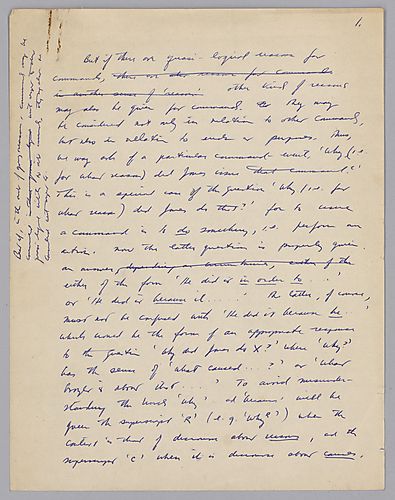 1.
But if there are quasi-logical reasons for
commands, there are also reasons for commands
in another sense of 'reason'. other kind of reasons
may also be given for commands. They may
be considered not only in relation to other commands,
but also in relation to ends or purposes. Thus
we may ask of a particular command event, 'Why (i.e.
for what reason) did Jones issue that command?'
This is a special case of the question 'Why (i.e. for
what reason) did Jones do this?' for to issue
a command is to do something, i.e. perform an
action. Now the latter question is properly given
an answer, depending on either of the
either of the form 'He did it in order to . . .'
or 'He did it because it . . . .' The latter, of course,
must not be confused with 'He did it because he . .'
which would be the form of an appropriate response
to the question 'Why did Jones do X?' where 'Why?'
has the sense of 'What caused . . . ?' or 'What
brought it about that . . . . ?' To avoid misunder-
standing the words 'why' and 'because' will be
given the superscript 'R' (e.g. 'Why R?') when the
context is that of discourse about reasons, and the
superscript 'C' when it is discourse about causes.